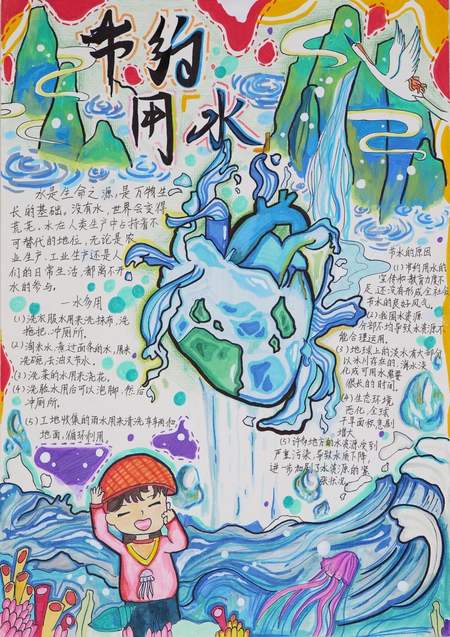 节约
用水
水是生命之源,是万物生
长的基础。没有水,世界会变得
荒芜,水在人类生产中占持着不
可替代的地位,无论是农
业生产、工业生产还是人
们的日常生活,都离不开
水的参与。
一水多用
(1)洗衣服水用来洗抹布,洗
拖把,冲厕所。
(2)淘米水,煮过面条的水,用来
洗碗,去油又节水。
(3)洗菜的水用来浇花。
(4)洗脸水用后可以泡脚,然后
冲厕所。
(5)工地收集的雨水用来清洗车辆和
地面,循环利用
节水的原因
(1)节约用水的
宣传和教育力度不
足,还没有形成全社会
节水的良好风气。
(2)我国水资源
分部不均导致水资源不
能合理运用。
(3)地球上的淡水有大部分
以冰川存在的,滴水淡
化成可用水需要
很长的时间。
(4)生态环境
恶化,全球
干旱面积急剧
增大
(5)许多地方的水资源受到
严重污染,导致水质下降,
进一步加剧了水资源的紧
张状况